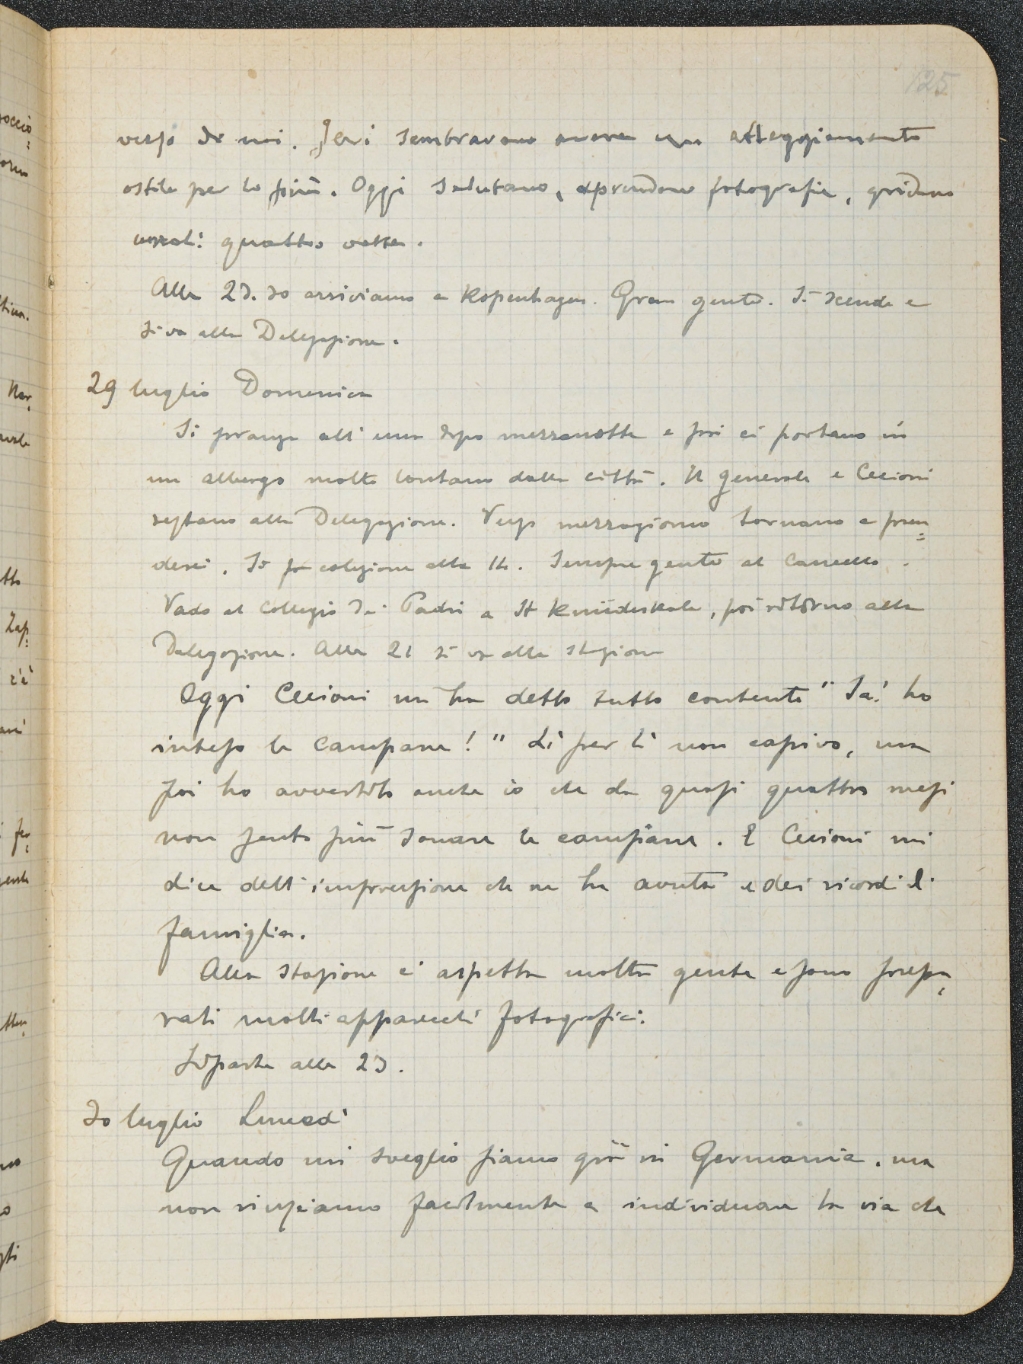 125
verso di noi. Ieri sembravano avere un atteggiamento
ostile per lo più. Oggi salutano, prendono fotografie, gridano
quattro volte.
Alle 23.30 arriviamo a Kopenhagen. Gran gente. Si scende e
si va alla Delegazione.
29 luglio Domenica
Si pranza all'una dopo mezzanotte e poi ci portano in
un albergo molto lontano dalla città. Il generale e Cecioni
restano alla Delegazione. Verso mezzogiorno tornano a pren=
derci. Io fo colazione alle 14. Sempre gente al cancello.
Vado al Collegio dei Padri a St Knudsskole, poi ritorno alla
Delegazione. Alle 21 si va alla stazione
Oggi Cecioni mi ha detto tutto contento "Sa! ho
inteso le campane!" Lì per lì non capivo, ma
poi ho avvertito anche io che da quasi quattro mesi
non sento più sonare le campane. E Cecioni mi
dice dell'impressione che ne ha avuta e dei ricordi di
famiglia.
Alla stazione ci aspetta molta gente e sono prepa=
rati molti apparecchi fotografici.
Si parte alle 23.
30 luglio Lunedì
Quando mi sveglio siamo già in Germania, ma
non riusciamo facilmente a individuare la via che